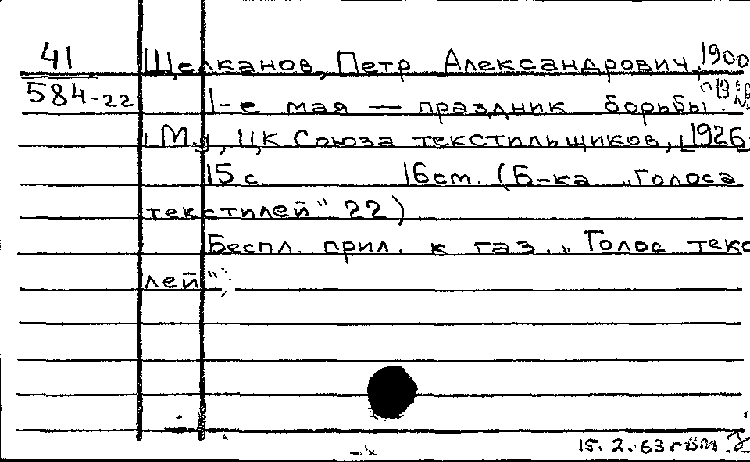 41 Щелканов, Петр Александрович, 1900
584-22 1-е мая — праздник борьбы.
[М.], ЦК Союза текстильщиков, [1926
15 с 16 см. (Б-ка „Голоса
текстилей" 22)
Беспл. прил. к газ. „Голос текс
лей"
15.2.63г